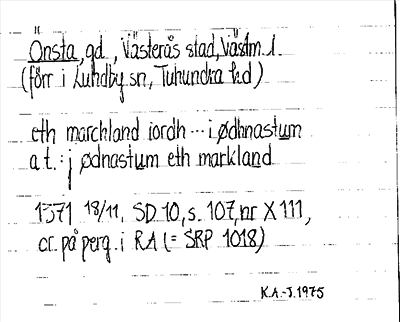 Önsta, gd., Västerås stad, Västm. l.
(förr i Lundby sn, Tuhundra hd)
eth marchland iordh ... i ødhnastum
a t.: j ødnastum eth markland
1371 18/11. SD 10, s. 107, nr X 111,
or. på perg. i RA (= SRP 1018)
K.A.-J. 1975